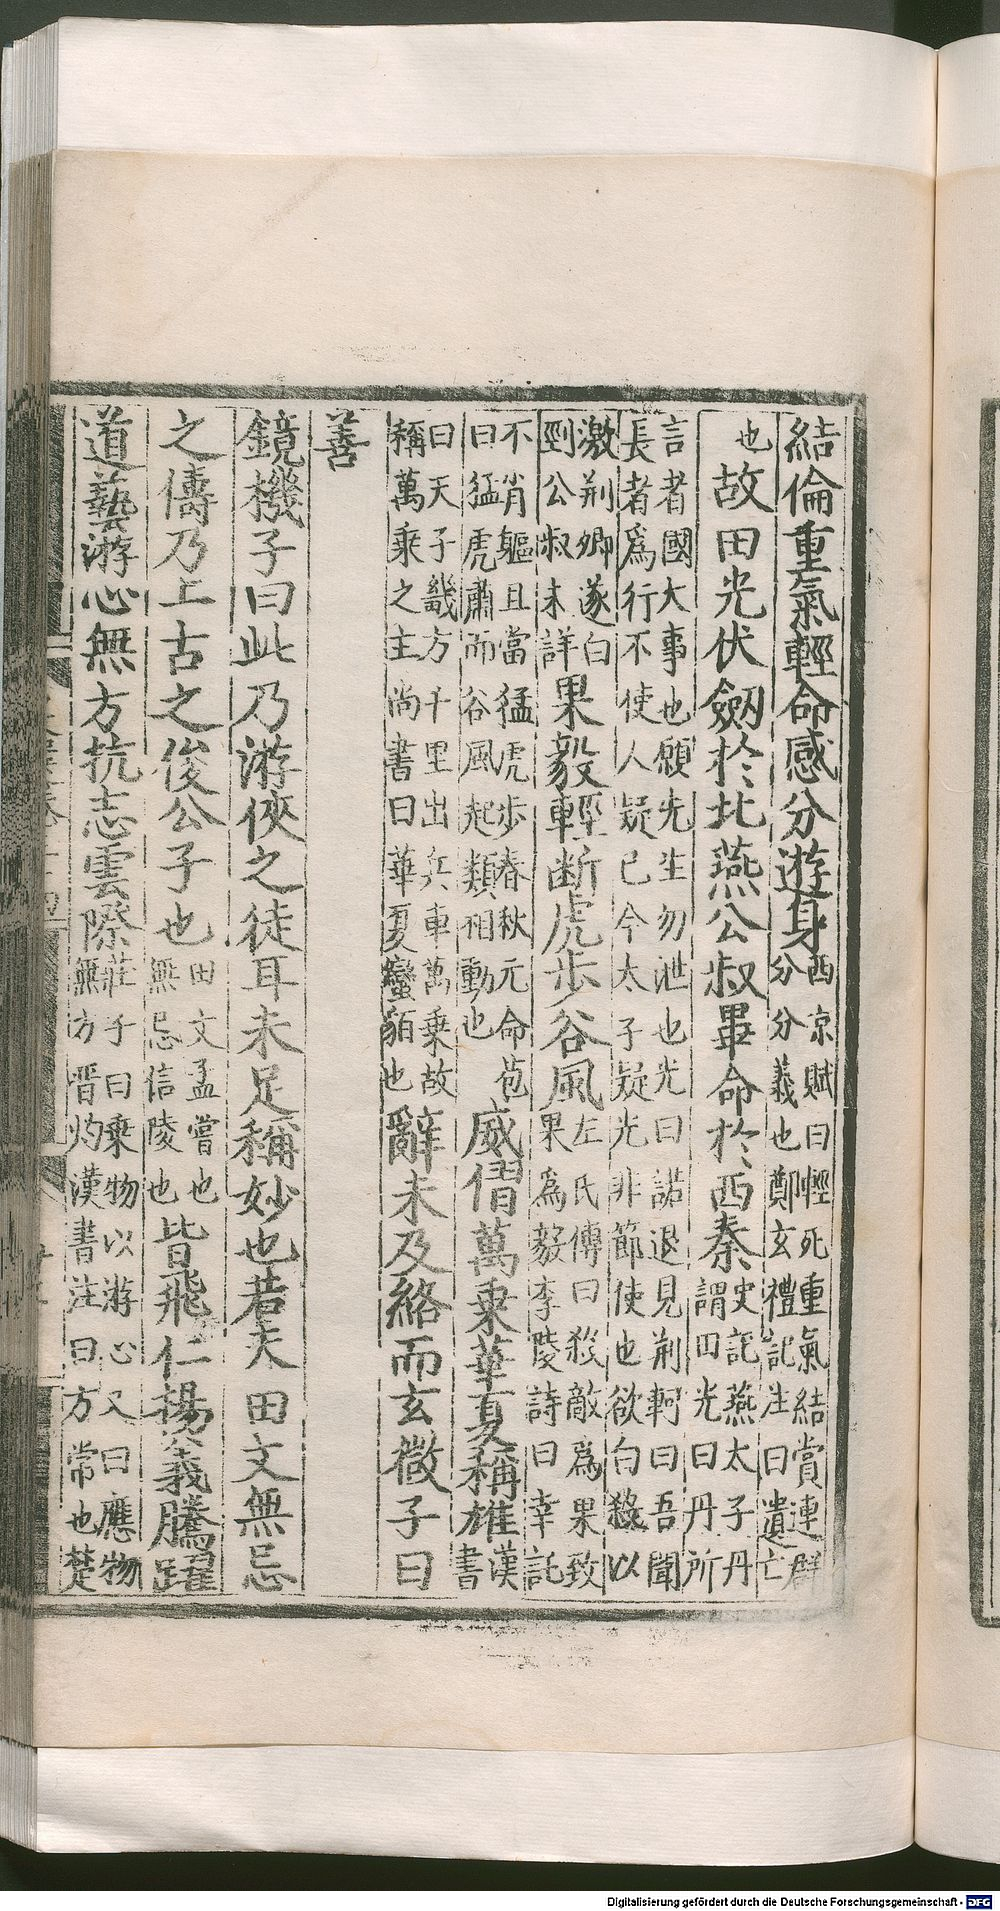 結倫重氣輕命感分遊身西京賦曰輕死重氣結賞連群分分義也鄭玄禮記注曰遺亡
也故田光伏劒於北燕公叔畢命於西秦史記燕太子丹謂田光曰丹所
言者國大事也願先生勿泄也光曰諾退見荊軻曰吾聞長者爲行不使人疑己今太子疑光非節使也欲自殺以
激荊卿遂自剄公叔未詳果毅輕斷虎步谷風左氏傳曰殺敵爲果致果爲毅李陵詩曰幸託
不肖軀且當猛虎步春秋元命苞曰猛虎肅而谷風起類相動也威慴萬乗華夏稱雄漢書
曰天子畿方千里出兵車萬乗故稱萬乗之主尚書曰華夏蠻貊也辭未及終而玄微子曰
善
鏡機子曰此乃游俠之徒耳未足稱妙也若夫田文無忌
之儔乃上古之俊公子也田文孟嘗也無忌信陵也皆飛仁揚義騰躍
道藝游心無方抗志雲際莊子曰乗物以游心又曰應物無方晋灼漢書注曰方常也楚
Digitalisierung gefördert durch die Deutsche Forschungsgemeinschaft - DFG